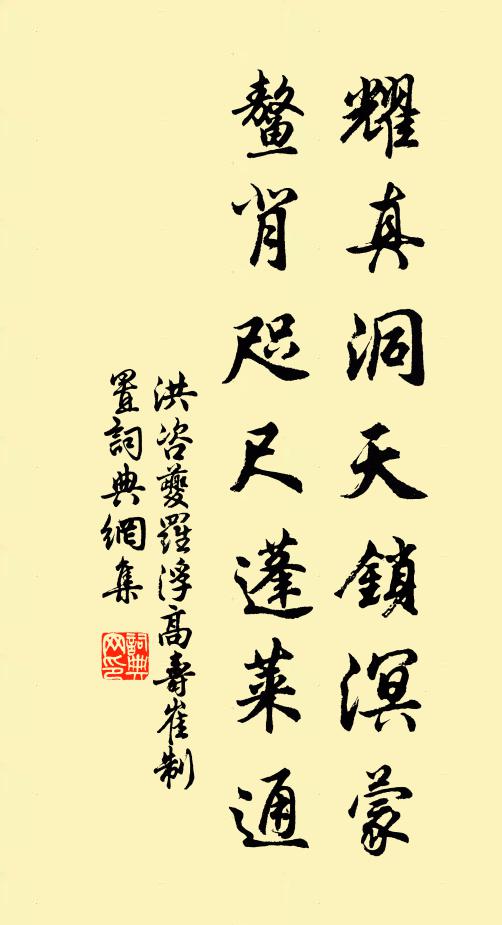 耀真洞天鎖溟蒙
鰲背咫尺蓬萊通
洪咨夔羅浮高壽崔制
置詞典網集
詞典
网印